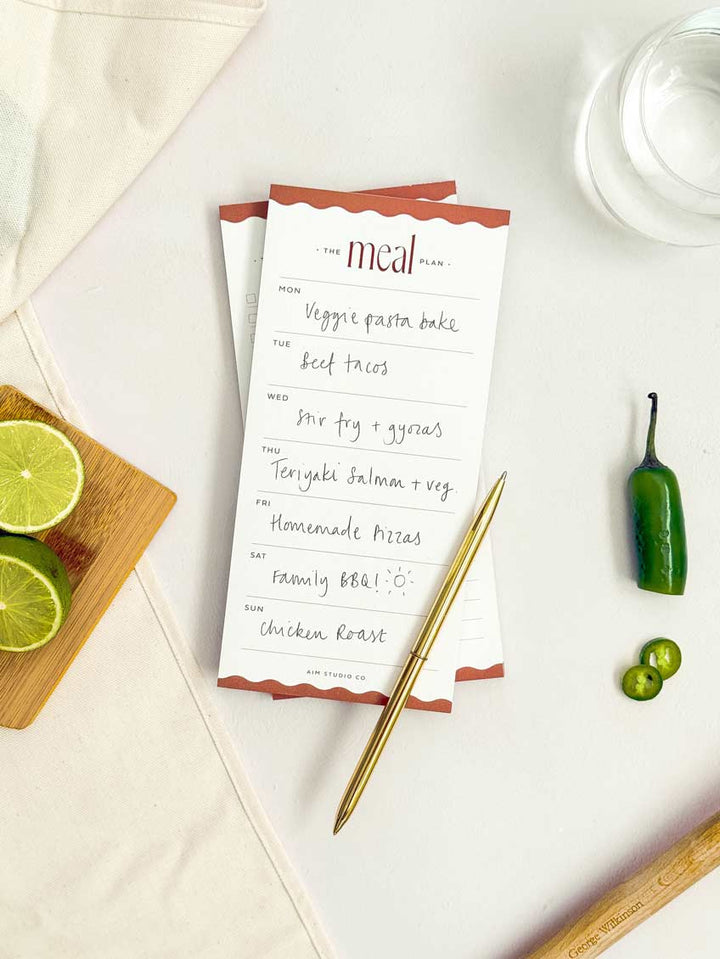 · THE meal PLAN ·
MON
Veggie pasta bake
TUE
Beef tacos
WED
Stir fry + gyozas
THU
Teriyaki Salmon + veg.
FRI
Homemade Pizzas
SAT
Family BBQ!
SUN
Chicken Roast
AIM STUDIO CO
George Wilkinson